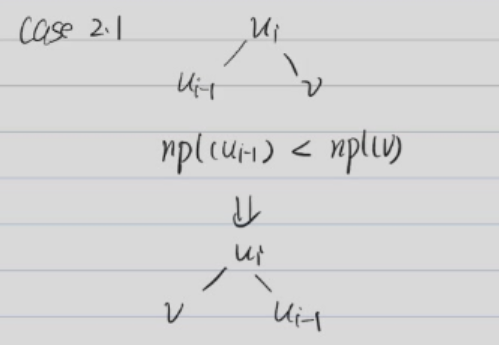 Case 2.1
u_i
u_{i-1} v
npl(u_{i-1}) < npl(v)
⇓
u_i
v u_{i-1}